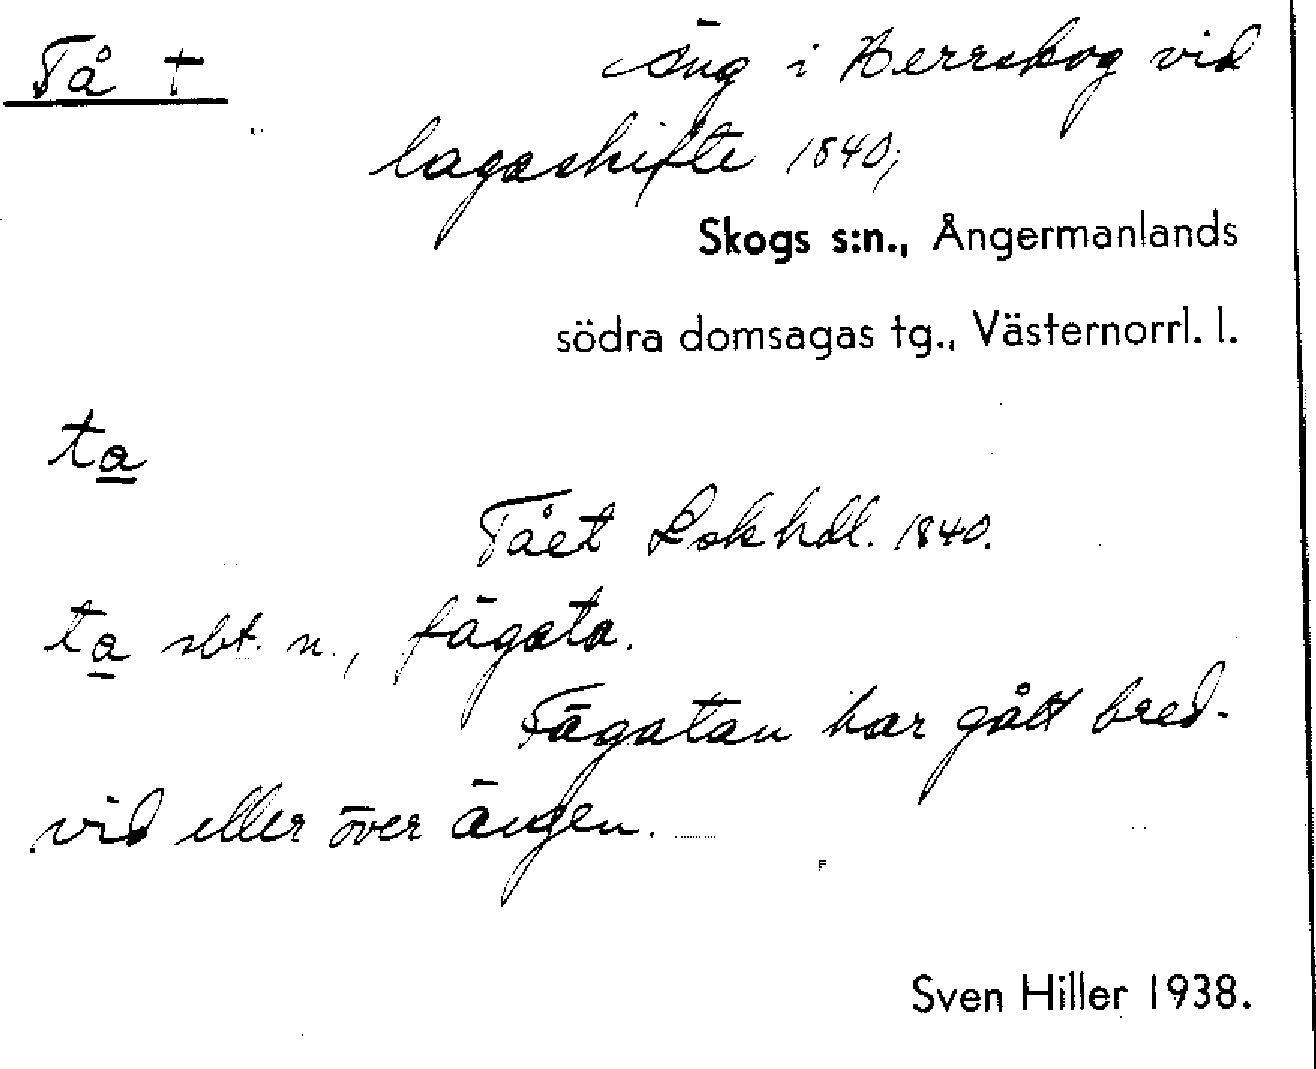 Tå †
äng i Herrskog vid
lagaskifte 1840;
Skogs s:n., Ångermanlands
södra domsagas tg., Västernorrl. l.
ta
Tået Lsk hdl. 1840.
ta sbt. n., fägata.
Fägatan har gått bred-
vid eller över ängen.
Sven Hiller 1938.